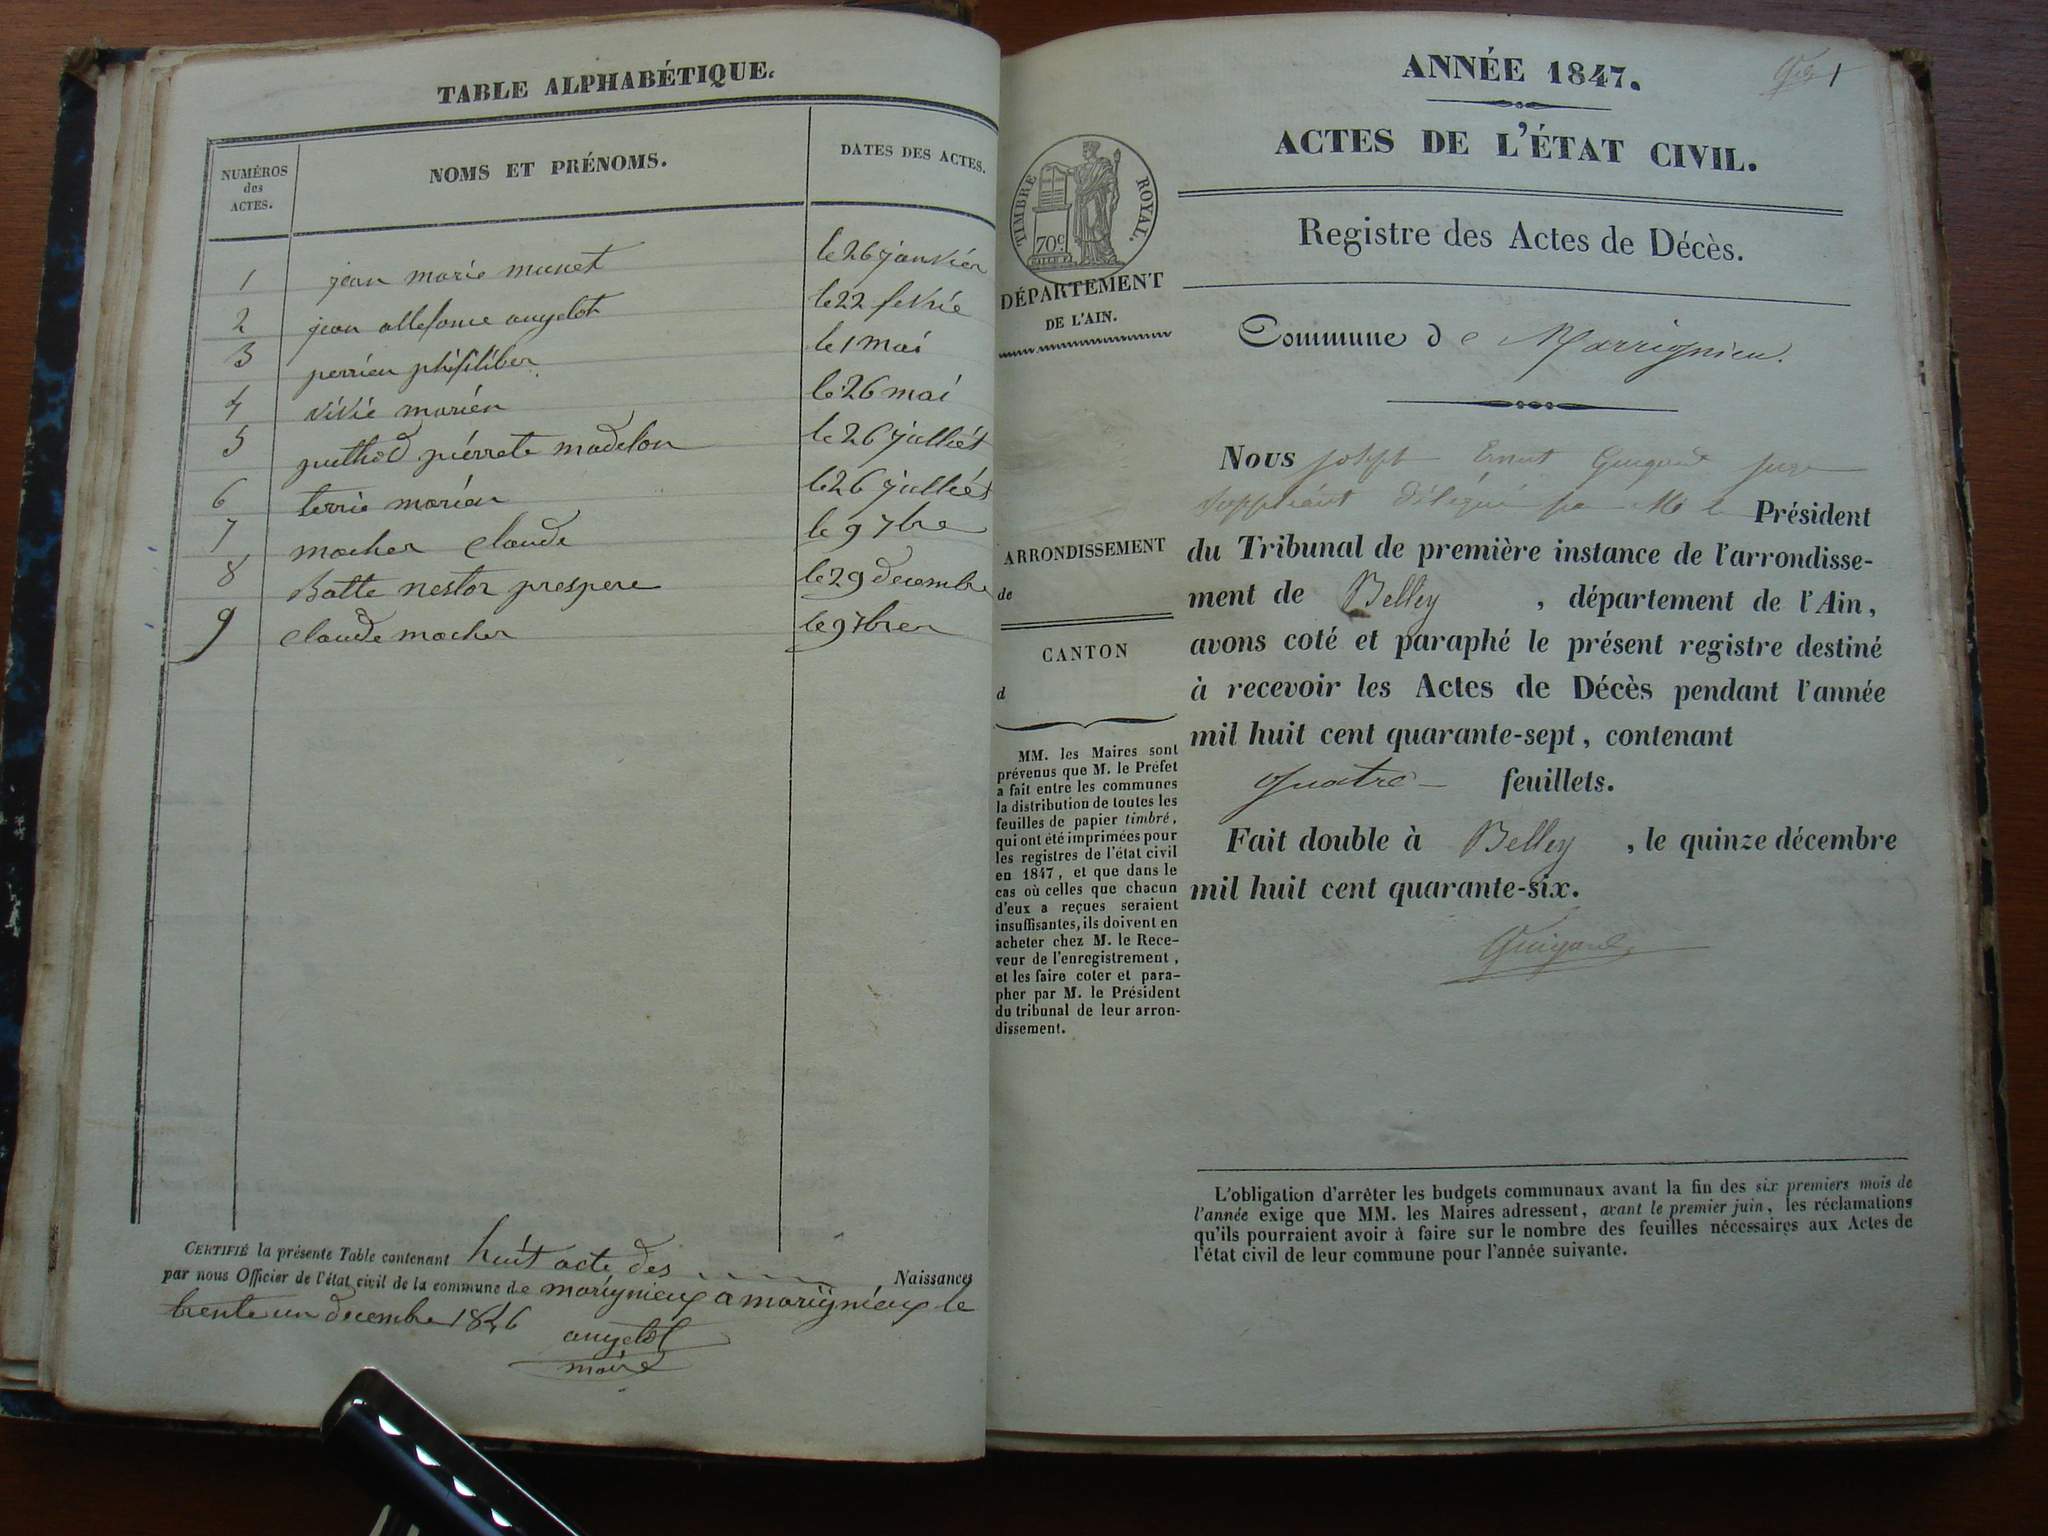 TABLE ALPHABÉTIQUE.
NUMÉROS
des
ACTES.
NOMS ET PRÉNOMS.
DATES DES ACTES.
1 jean marie munet le 26 janviér
2 jean allefonce angelot le 22 fevrié
3 perrien le 1 mai
4 marién le 26 mai
5 puthod piérrete madelon le 26 julliét
6 terrie marién le 26 julliét
7 macher claude le 9 7bre
8 Batte nestor prespere le 29 decembre
9 claude macher le 9 7brer
CERTIFIÉ la présente Table contenant huit acte des Naissances
par nous Officier de l'état civil de la commune de marignieux a marignieux le
trente un decembre 1846
angelot
maire
1
ANNÉE 1847.
ACTES DE L'ÉTAT CIVIL.
TIMBRE ROYAL.
70c
Registre des Actes de Décès.
DÉPARTEMENT
DE L'AIN.
Commune de Marrignieu.
Nous joseph Ernest Guigard juge
suppléant délégué par M. le Président
du Tribunal de première instance de l'arrondisse-
ment de Belley, département de l'Ain,
avons coté et paraphé le présent registre destiné
à recevoir les Actes de Décès pendant l'année
mil huit cent quarante-sept, contenant
quatre feuillets.
Fait double à Belley, le quinze décembre
mil huit cent quarante-six.
ARRONDISSEMENT
de
CANTON
d
MM. les Maires sont
prévenus que M. le Préfet
a fait entre les communes
la distribution de toutes les
feuilles de papier timbré,
qui ont été imprimées pour
les registres de l'état civil
en 1847, et que dans le
cas où celles que chacun
d'eux a reçues seraient
insuffisantes, ils doivent en
acheter chez M. le Rece-
veur de l'enregistrement,
et les faire coter et para-
pher par M. le Président
du tribunal de leur arron-
dissement.
L'obligation d'arrêter les budgets communaux avant la fin des six premiers mois de
l'année exige que MM. les Maires adressent, avant le premier juin, les réclamations
qu'ils pourraient avoir à faire sur le nombre des feuilles nécessaires aux Actes de
l'état civil de leur commune pour l'année suivante.